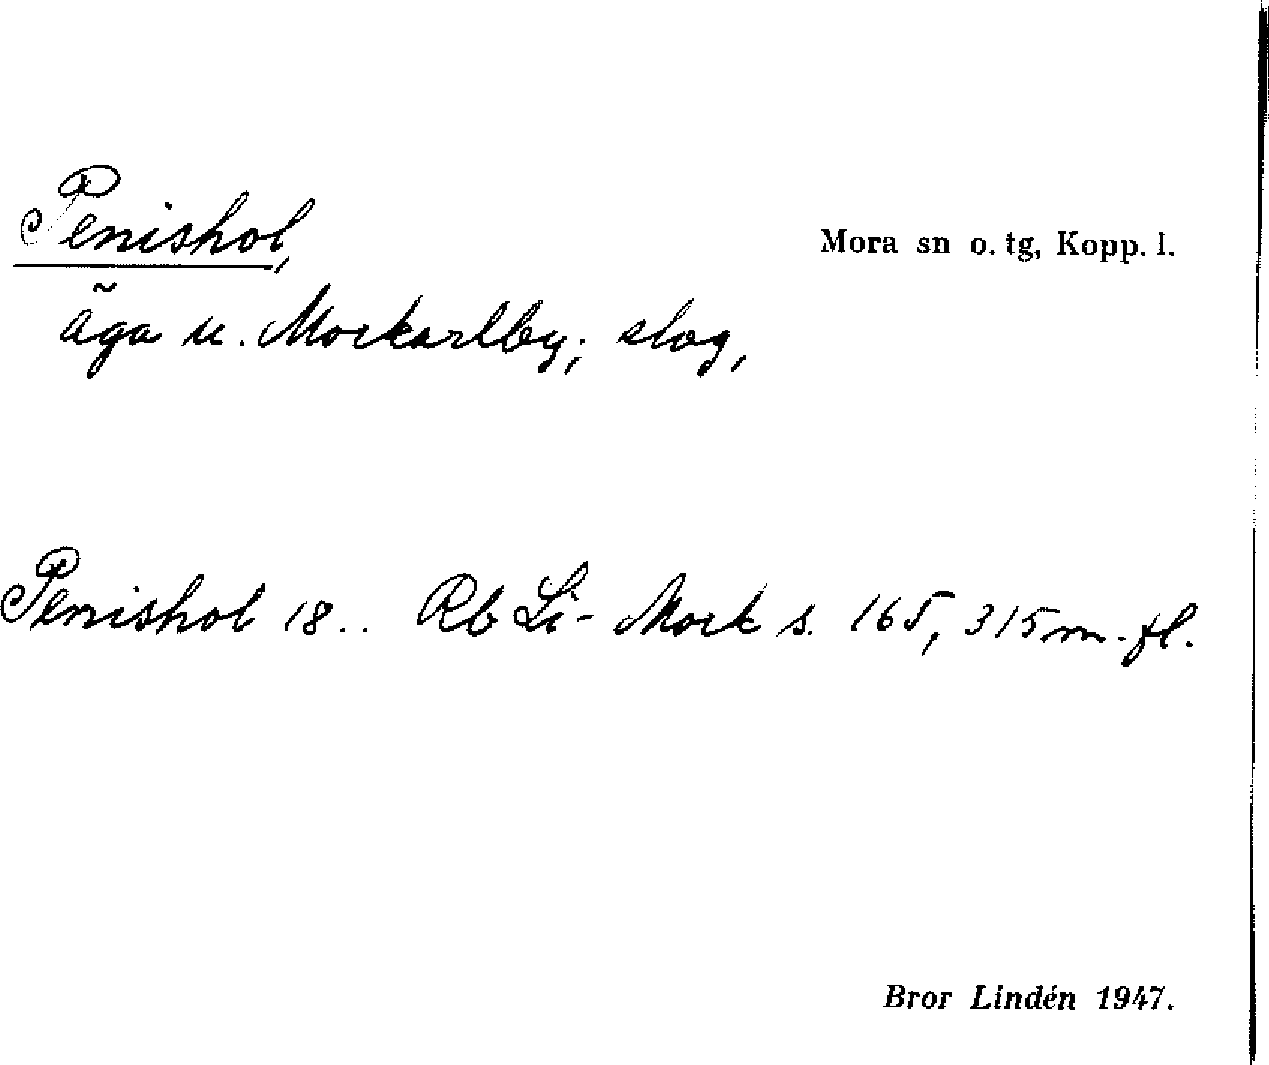 Penishol,
Mora sn o. tg, Kopp. l.
äga u. Mockarlby; slog,
Penishol 18.. Rb Li- Mock s. 165, 315 m. fl.
Bror Lindén 1947.